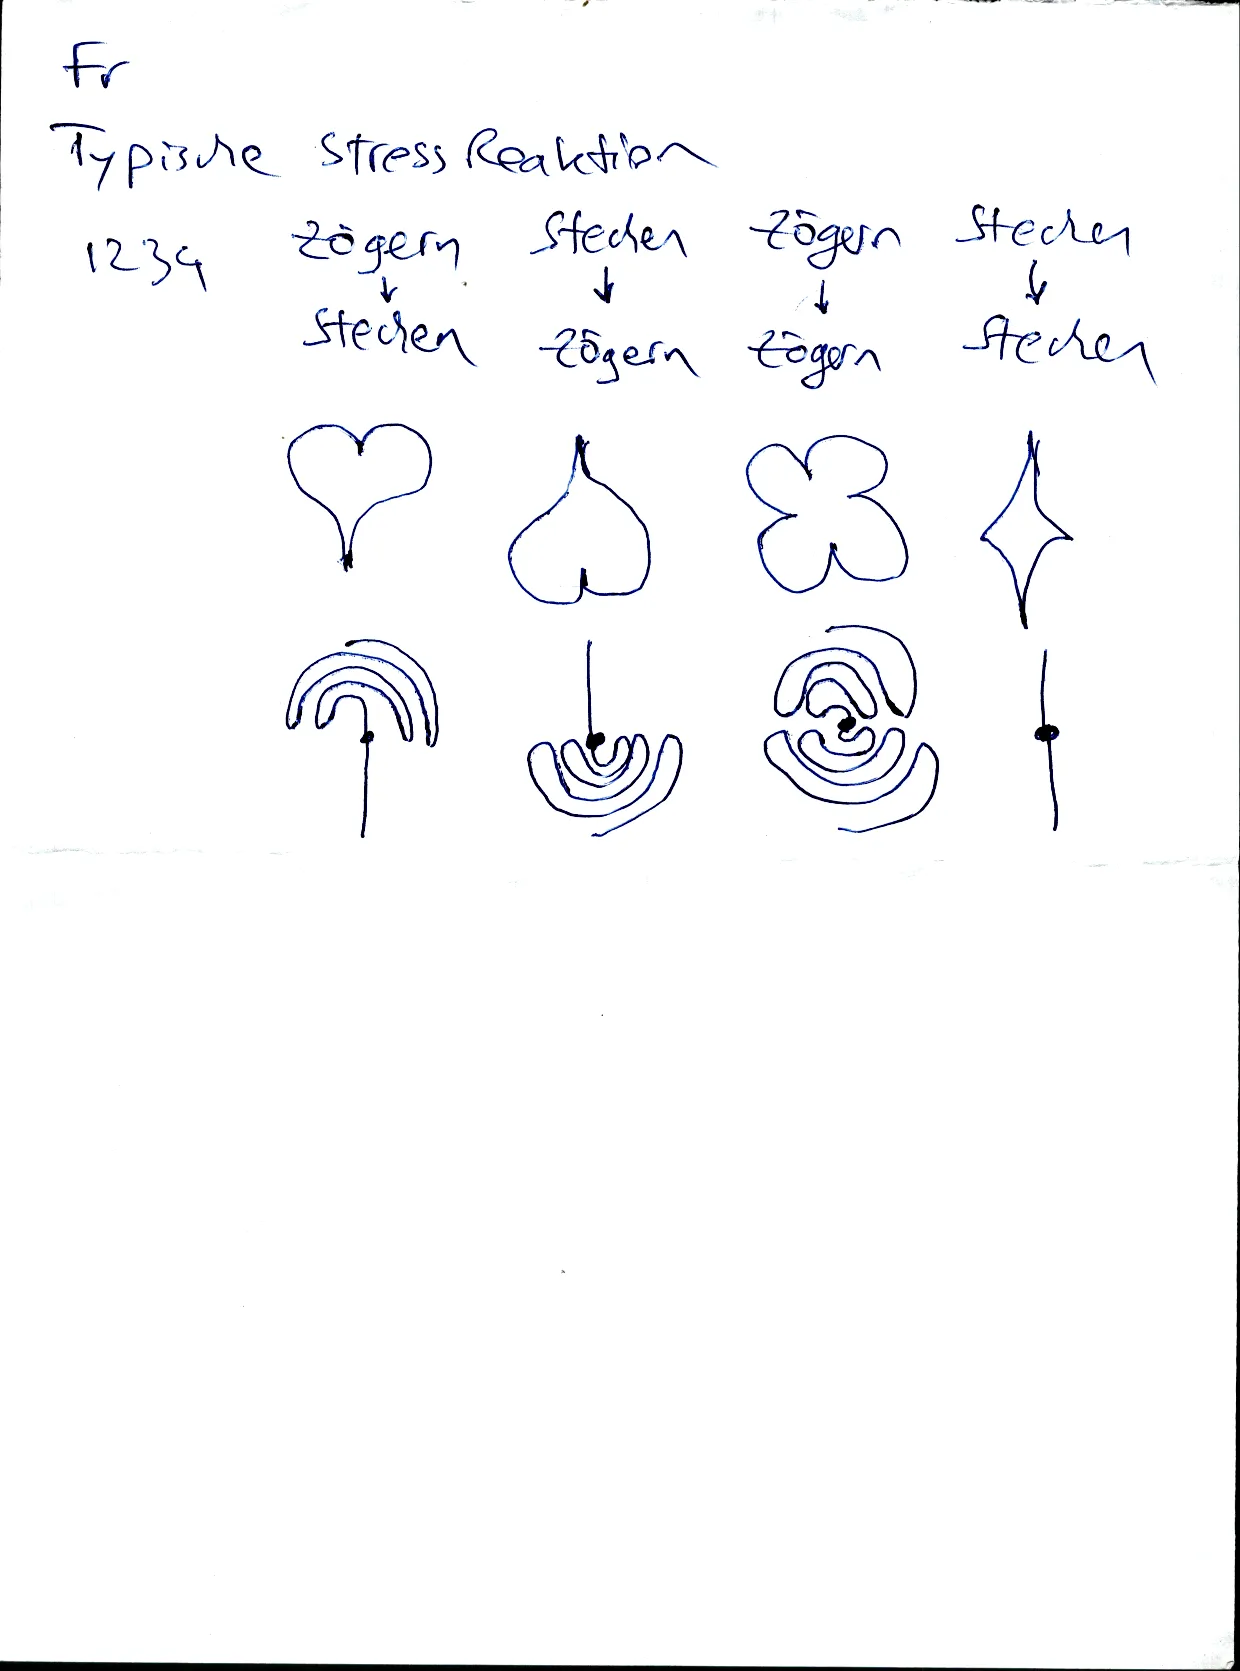 Fr
Typische Stress Reaktion
1234 Zögern Stechen Zögern Stechen
↓ ↓ ↓ ↓
Stechen Zögern Zögern Stechen